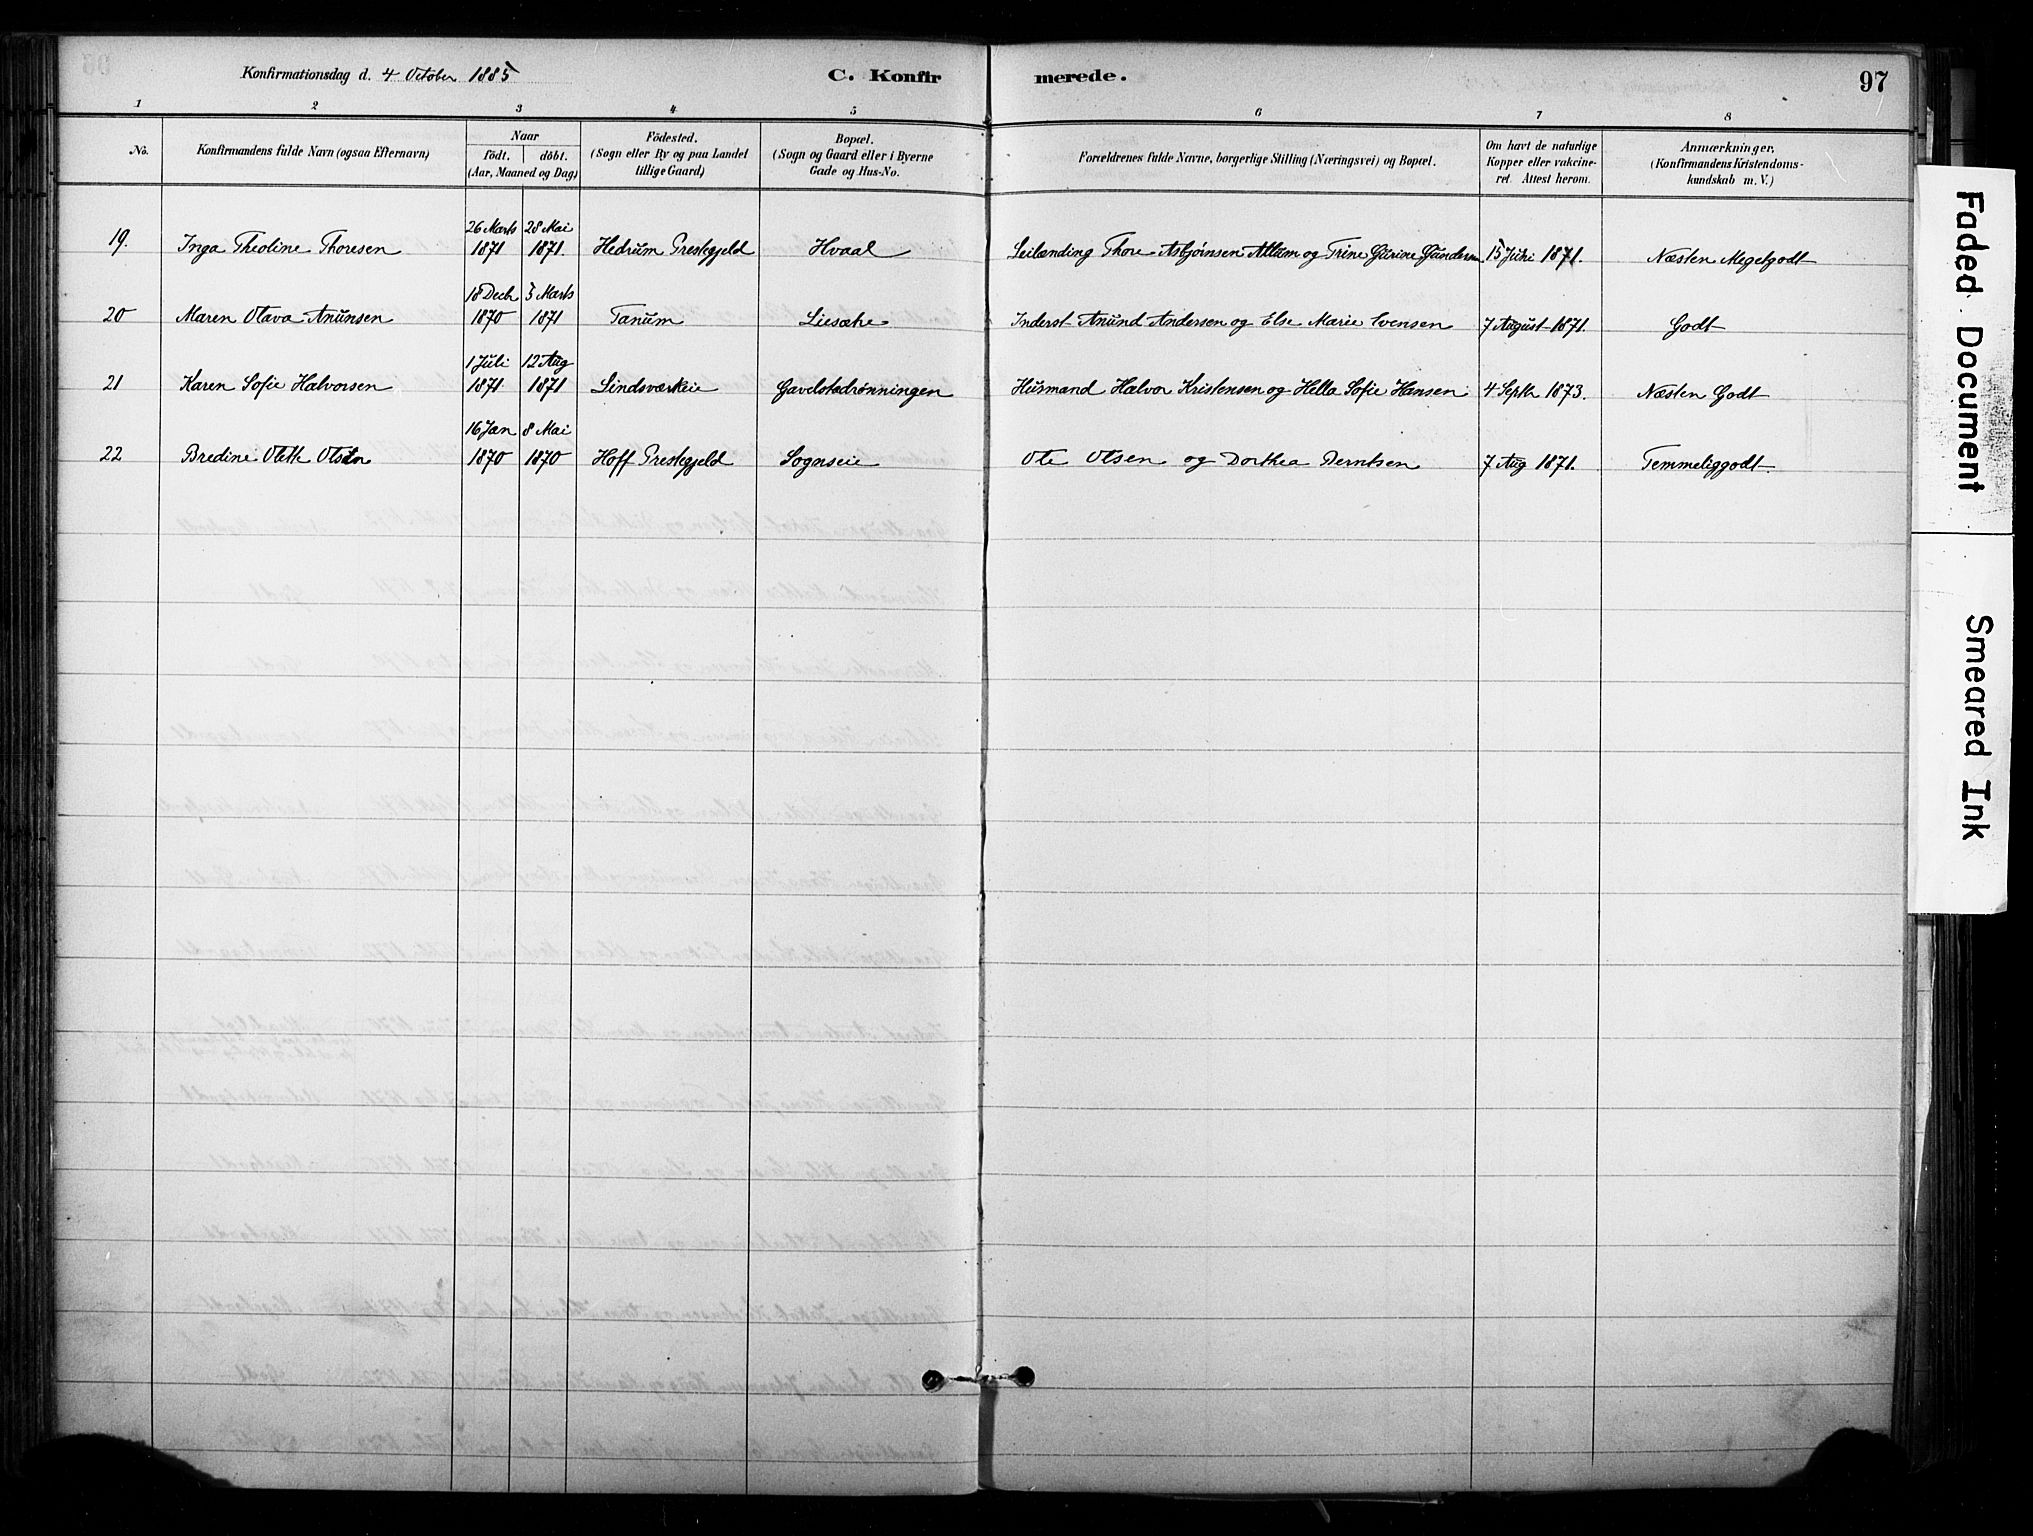 Konfirmationsdag d. 4 October 1885
C. Konfir merede.
97
1 2 3 4 5 6 7 8
No.
Konfirmandens fulde Navn (ogsaa Efternavn)
Naar
födt. döbt.
(Aar, Maaned og Dag)
Födested.
(Sogn eller By og paa Landet
tillige Gaard)
Bopæl.
(Sogn og Gaard eller i Byerne
Gade og Hus-No.
Forældrenes fulde Navne, borgerlige Stilling (Næringsvei) og Bopæl.
Om havt de naturlige
Kopper eller vakcine-
ret. Attest herom.
Anmærkninger,
(Konfirmandens Kristendoms-
kundskab m. V.)
26 Marts 28 Mai
19. Inga Theoline Thoresen 1871 1871. Hedrum Prestegjeld Hvaal Leilænding Thore Asbjørnsen Allum og Trine Gurine Gundersen 15 Juni 1871. Næsten Megetgodt
18 Decb 5 Marts
20 Maren Olava Anunsen 1870 1871 Tanum Liesæhe Inderst Anund Andersen og Else Marie Evensen 7 August 1871. Godt
1 Juli 12 Aug
21 Karen Sofie Halvorsen 1871 1871 Lindsværkeie Gavelstadrønningen Husmand Halvor Kristensen og Hella Sofie Hansen 4 Septr 1873. Næsten Godt
16 Jan 8 Mai
22 Bredine Olette Olsen 1870 1870 Hoff Prestegjeld Sognseie Ole Olsen og Dorthea Berntsen 7 Aug 1871. Temmeliggodt.
Faded Document
Smeared Ink